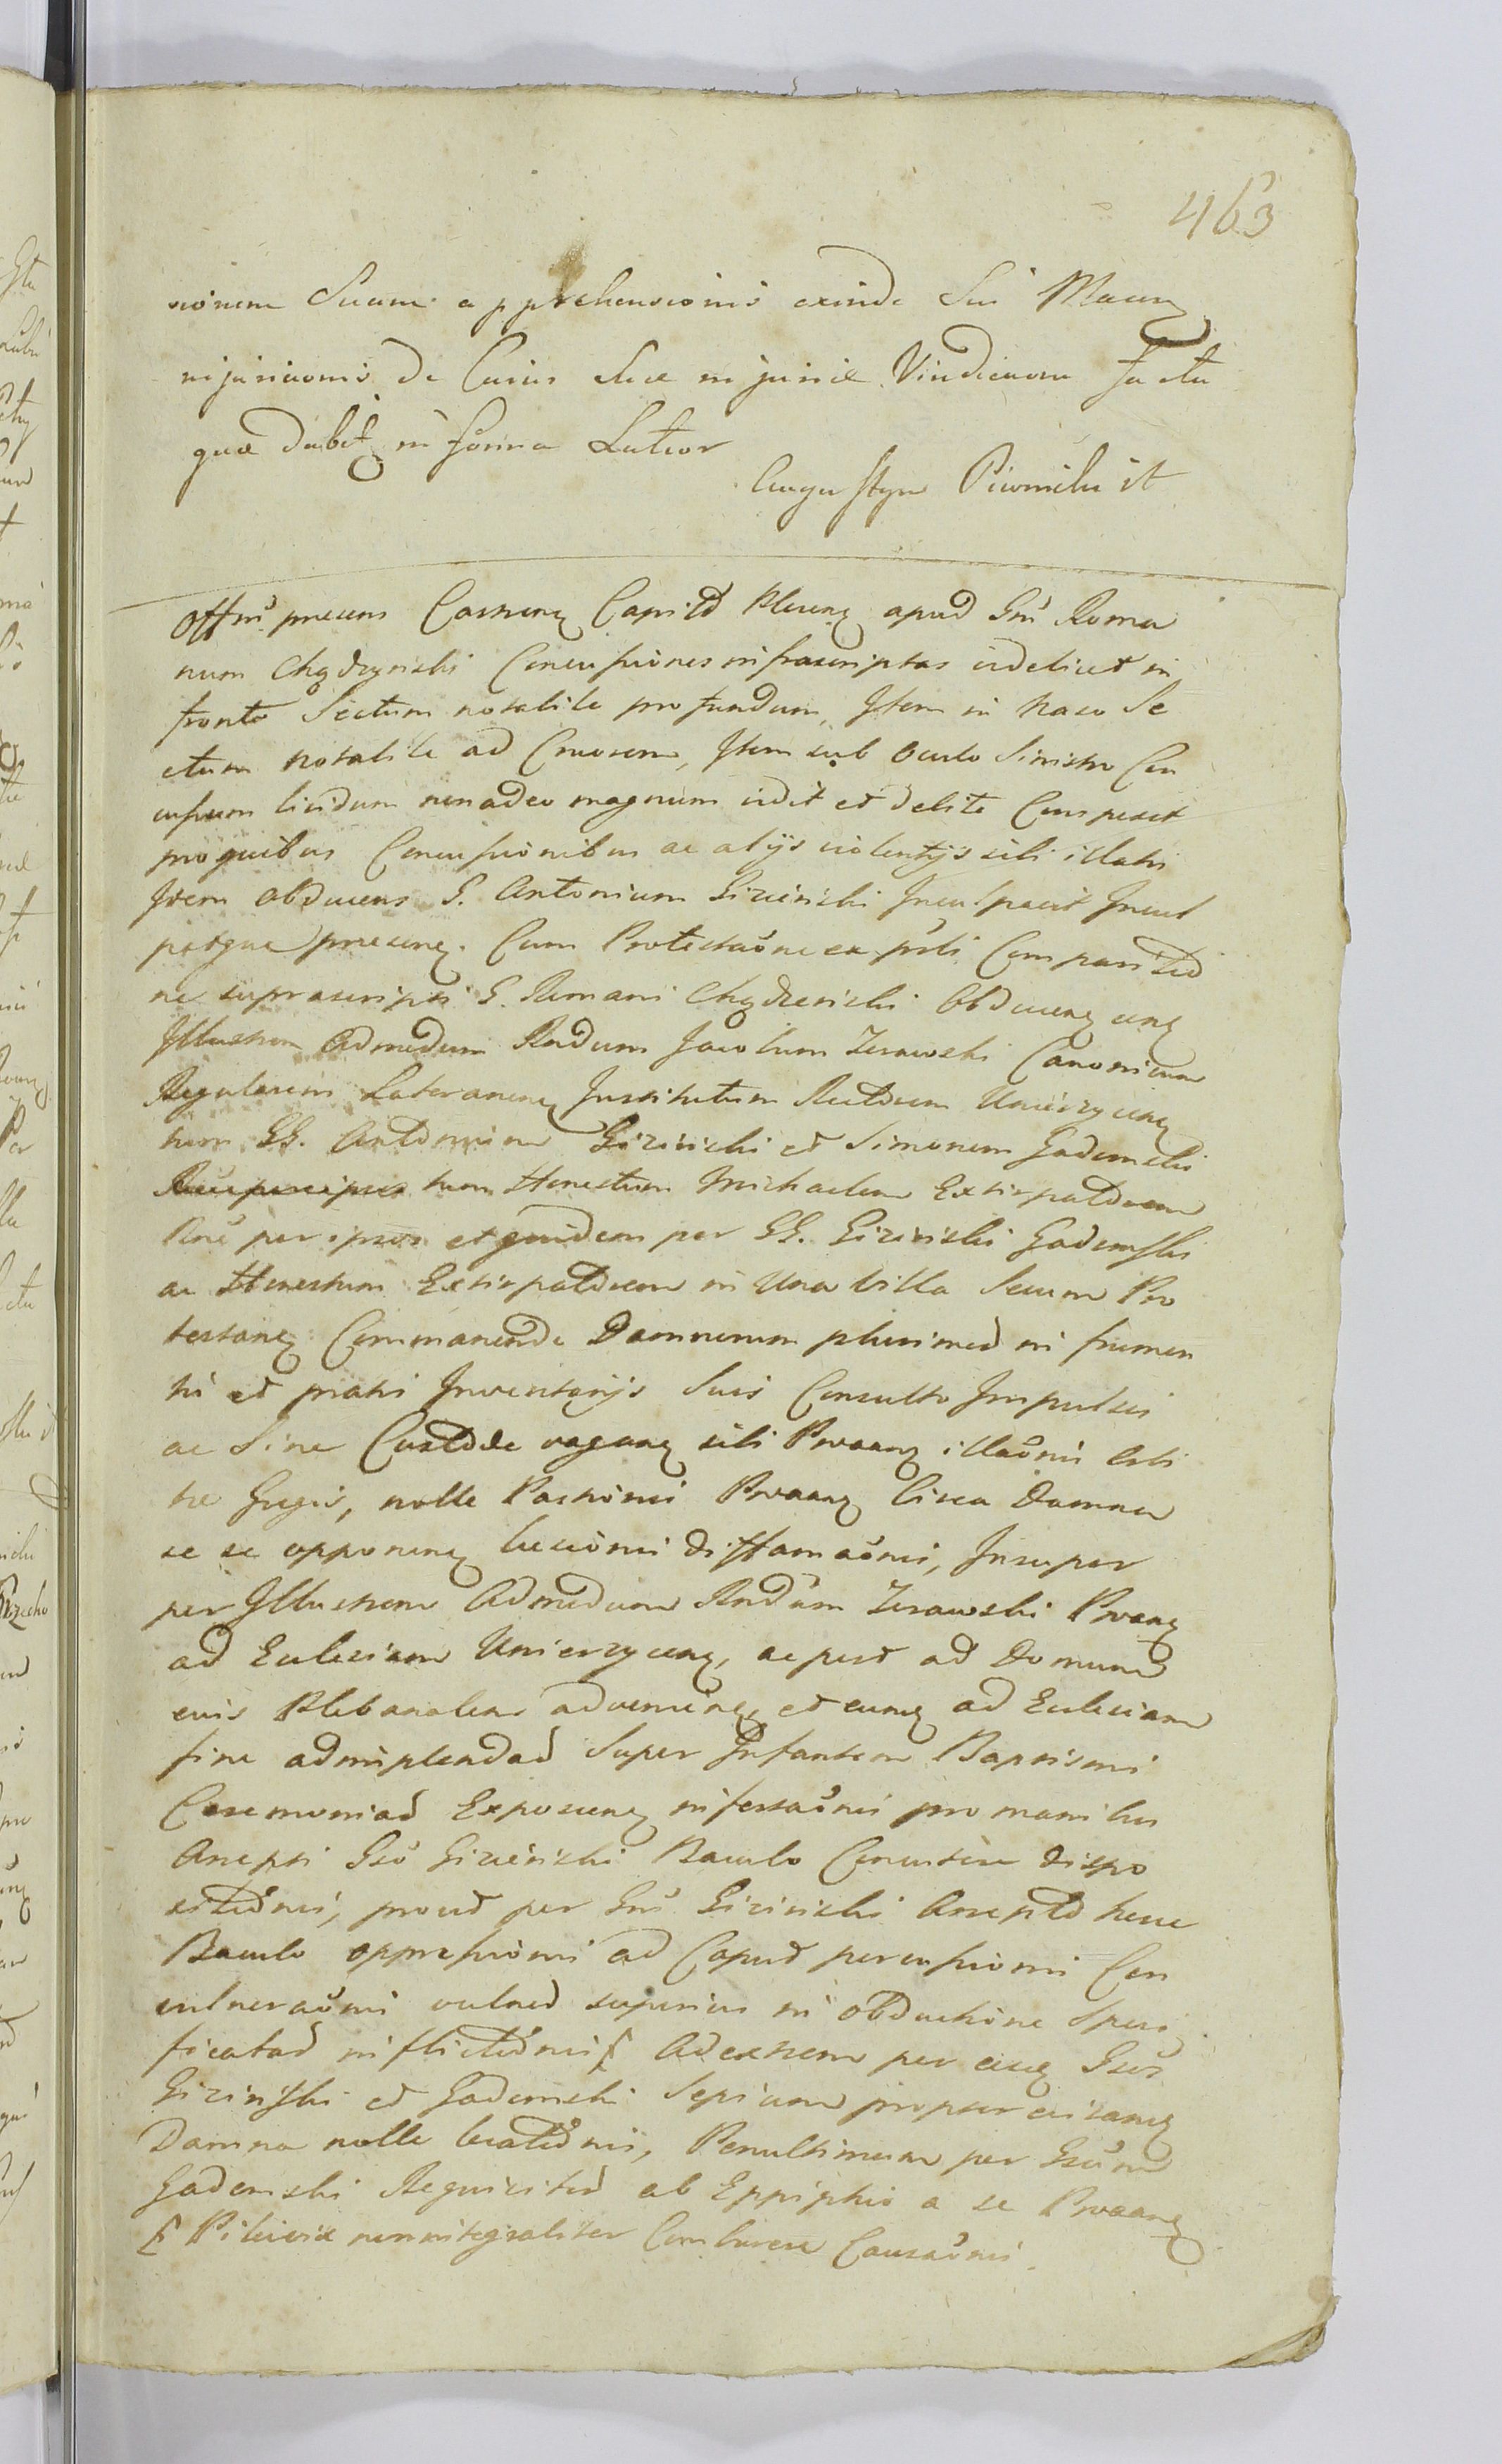 463
sionem Suam apprehensionis exinde Sui Maun
injuriaonis de Cuius Suae injuriae Vindicaone facta
quae dabit in forma Latior
Augustyn Piwnicki it
Offm praesens Castrene Capitle Plocen apud Gm Roma
num Chądzyński Concussiones infrascriptas videlicet in
fronte Sectum notabile profundum, Item in Naso Se
ctum notabile ad Cruorem, Item sub Oculo Sinistro Con
cussum lividum non adeo magnum vidit et debite Conspexit
pro quibus Concussionibus ac alijs violentijs sibi illatis
Idem Obducens G. Antonium Giziński Inculpavit Incul
patque praesens. Cum Protestaone ex parti Comparitio
ne suprascripti G. Romani Chądzeński Obducen cong
Illustrem Admodum Rndum Jacobum Zerawski Canonicum
Regularem Lateranen Institutum Rectorem Unierzycen
tum GG. Antonium Giziński et Simonem Gadomski
tum Honestum Michaelem Extirpatorem
Rne per ipsos et quidem per GG. Giziński Gadomski
ac Honestum Extirpatorem in Una Villa Secum Pro
testan Commanende Damnorum plurimor in frumen
ti et prati Inventarijs Suis Consulto Impulsis
ac Sine Custode vagan sibi Proan illaonis
Gregis, nolle Pastoris Proan Circa Damna
se se opponen laesionis diffamaonis, Insuper
per Illustrem Admodum Rndum Zerawski Proan
ad Ecclesiam Unierzycen, ac post ad Domum
eius Plebanalem advenien et eung ad Ecclesiam
fine adimplendar Super Infantem Baptismi
Ceremoniar Exposcen infestaonis pro manibus
Arrepti Gso Giziński Baculo Concutere dispo
sitionis, prout per Gm Giziński Arrepto hocce
Baculo oppressionis ad Caput percussionis Con
vulneraonis vulner superius in obductione Speci
ficatar inflictionis Ad extrem per eung Gsos
Giziński et Gadomski Sepium propter evitan
Damna nolle locationis, Penultimum per Gsum
Gadomski Requisitis ab Epphiphio a se Proan
non integraliter Comburere Causaonis.